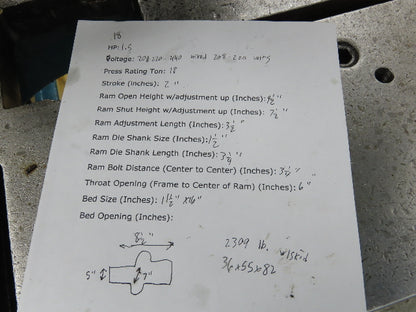 18
HP: 1.5
Voltage: 208-220-440 wired 208-220 volts
Press Rating Ton: 18
Stroke (inches): 2"
Ram Open Height w/adjustment up (Inches): 9½"
Ram Shut Height w/Adjustment up (Inches): 7½"
Ram Adjustment Length (Inches): 3½"
Ram Die Shank Size (Inches): 1½"
Ram Die Shank Length (Inches):
Ram Bolt Distance (Center to Center) (Inches): 3½"
Throat Opening (Frame to Center of Ram) (Inches): 6"
Bed Size (Inches): 16"
Bed Opening (Inches):
8½"
5"
7"
2309 lb.
w/skid
36x55x82